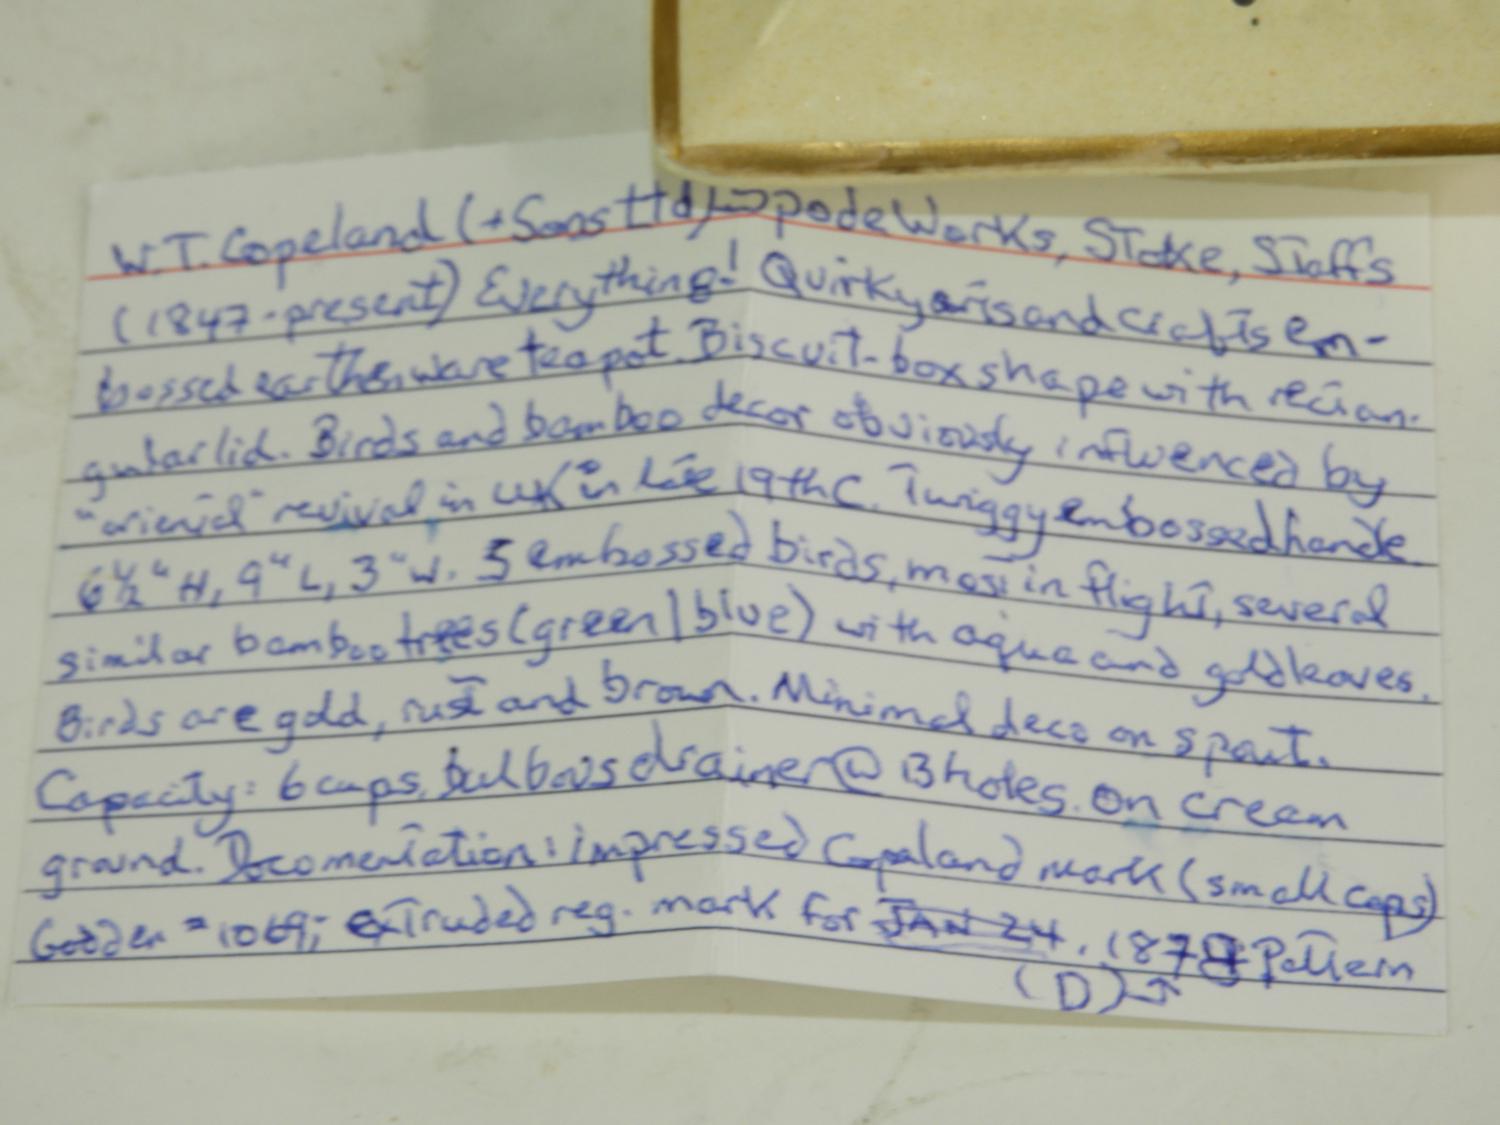 W.T. Copeland (+ Sons Ltd) Spode Works, Stoke, Staffs
(1847-present) Everything! Quirky arts and crafts em-
bossed earthenware teapot. Biscuit-box shape with rectan-
gular lid. Birds and bamboo decor obviously influenced by
"oriental" revival in UK in late 19th C. Twiggy embossed handle
6½" H, 9" L, 3" W. 5 embossed birds, most in flight, several
similar bamboo trees (green/blue) with aqua and gold leaves.
Birds are gold, rust and brown. Minimal deco on spout.
Capacity: 6 cups, bulbous drainer @ 13 holes. On cream
ground. Documentation: impressed Copeland mark (small caps)
Godden #1069; extruded reg. mark for JAN 24, 1878 Pattern
(D)